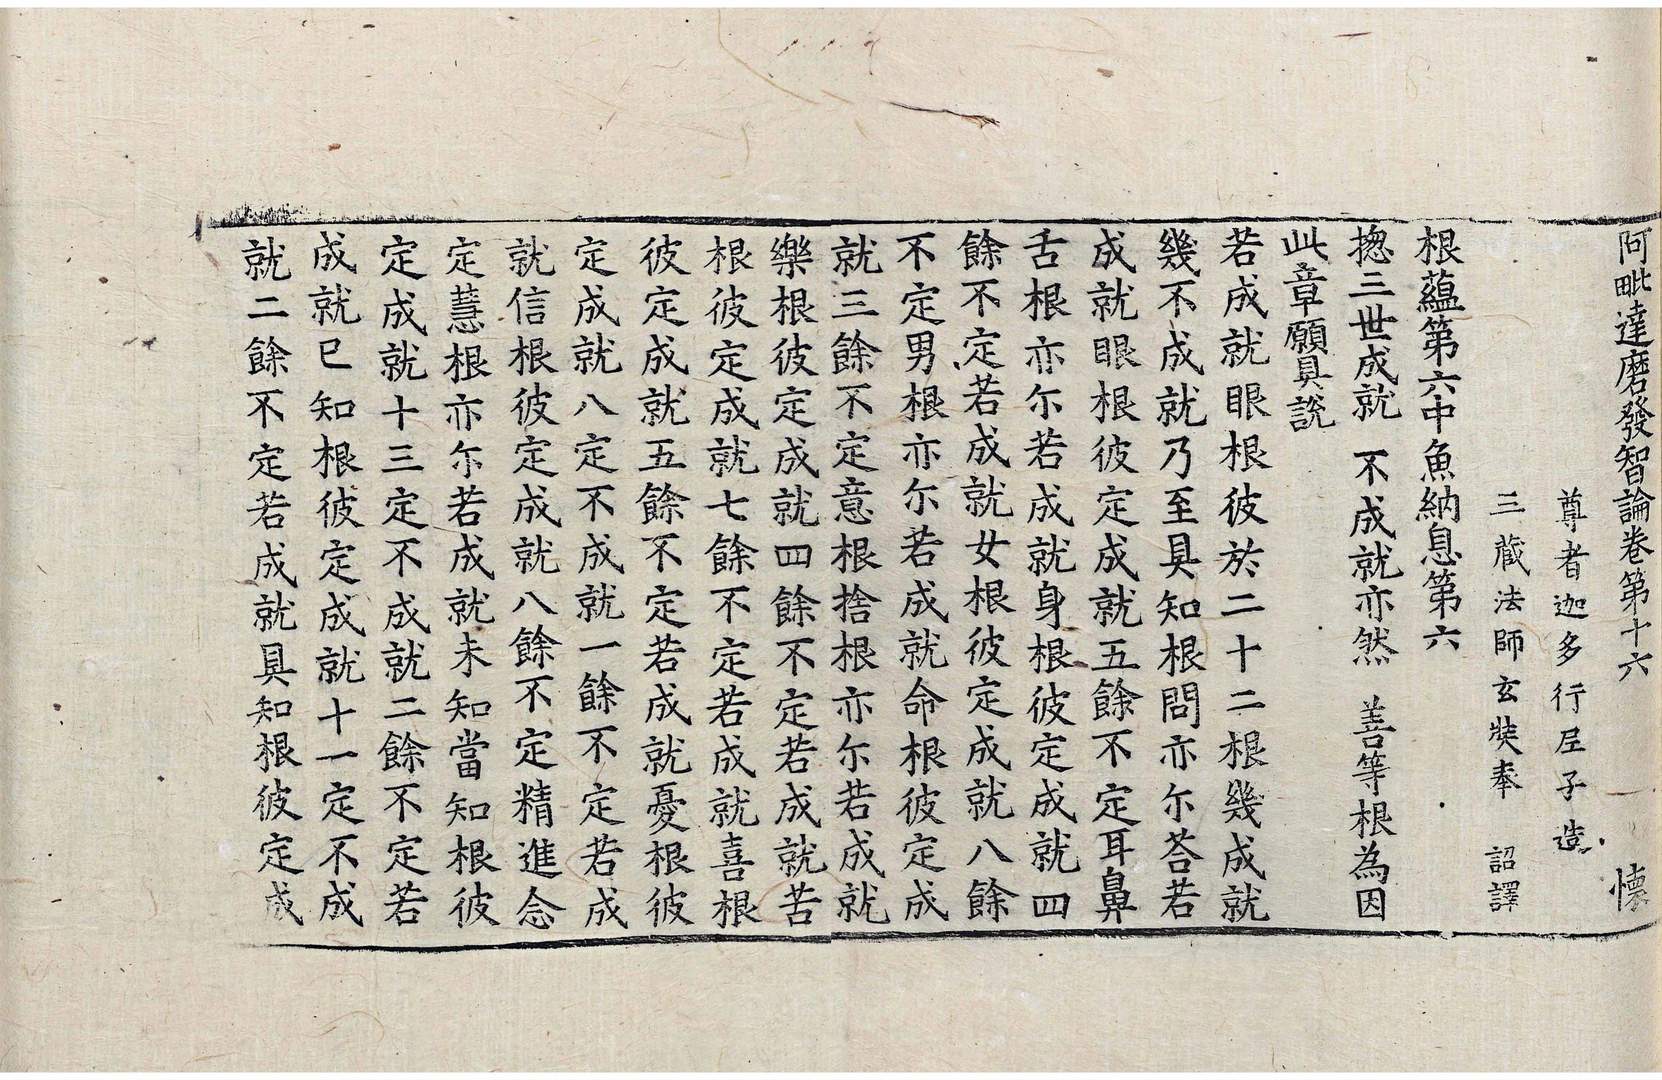 阿毗達磨發智論卷第十六 懷
尊者迦多行尼子造
三藏法師玄奘奉 詔譯
根蘊第六中魚納息第六
揔三世成就 不成就亦然 善等根為因
此章願具說
若成就眼根彼於二十二根幾成就
幾不成就乃至具知根問亦尒荅若
成就眼根彼定成就五餘不定耳鼻
舌根亦尒若成就身根彼定成就四
餘不定若成就女根彼定成就八餘
不定男根亦尒若成就命根彼定成
就三餘不定意根捨根亦尒若成就
樂根彼定成就四餘不定若成就苦
根彼定成就七餘不定若成就喜根
彼定成就五餘不定若成就憂根彼
定成就八定不成就一餘不定若成
就信根彼定成就八餘不定精進念
定慧根亦尒若成就未知當知根彼
定成就十三定不成就二餘不定若
成就已知根彼定成就十一定不成
就二餘不定若成就具知根彼定成